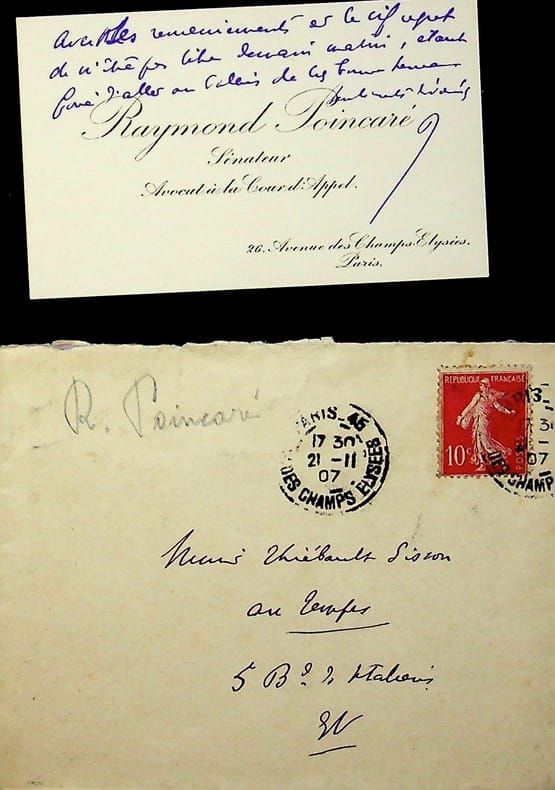 Avec les remerciements et le vif regret
de n'être pas libre demain matin, étant
forcé d'aller au Palais de
Raymond Poincaré
Sénateur
Avocat à la Cour d'Appel.
26. Avenue des Champs Elysées.
Paris.
R. Poincaré
PARIS_45
17 30
21 -11
07
DES CHAMPS ELYSEES
REPUBLIQUE FRANÇAISE
10c
POSTES
RIS_
7 30
07
DES CHAMP
Thiébault Sisson
au Temps
5 Bd. des Italiens
EV